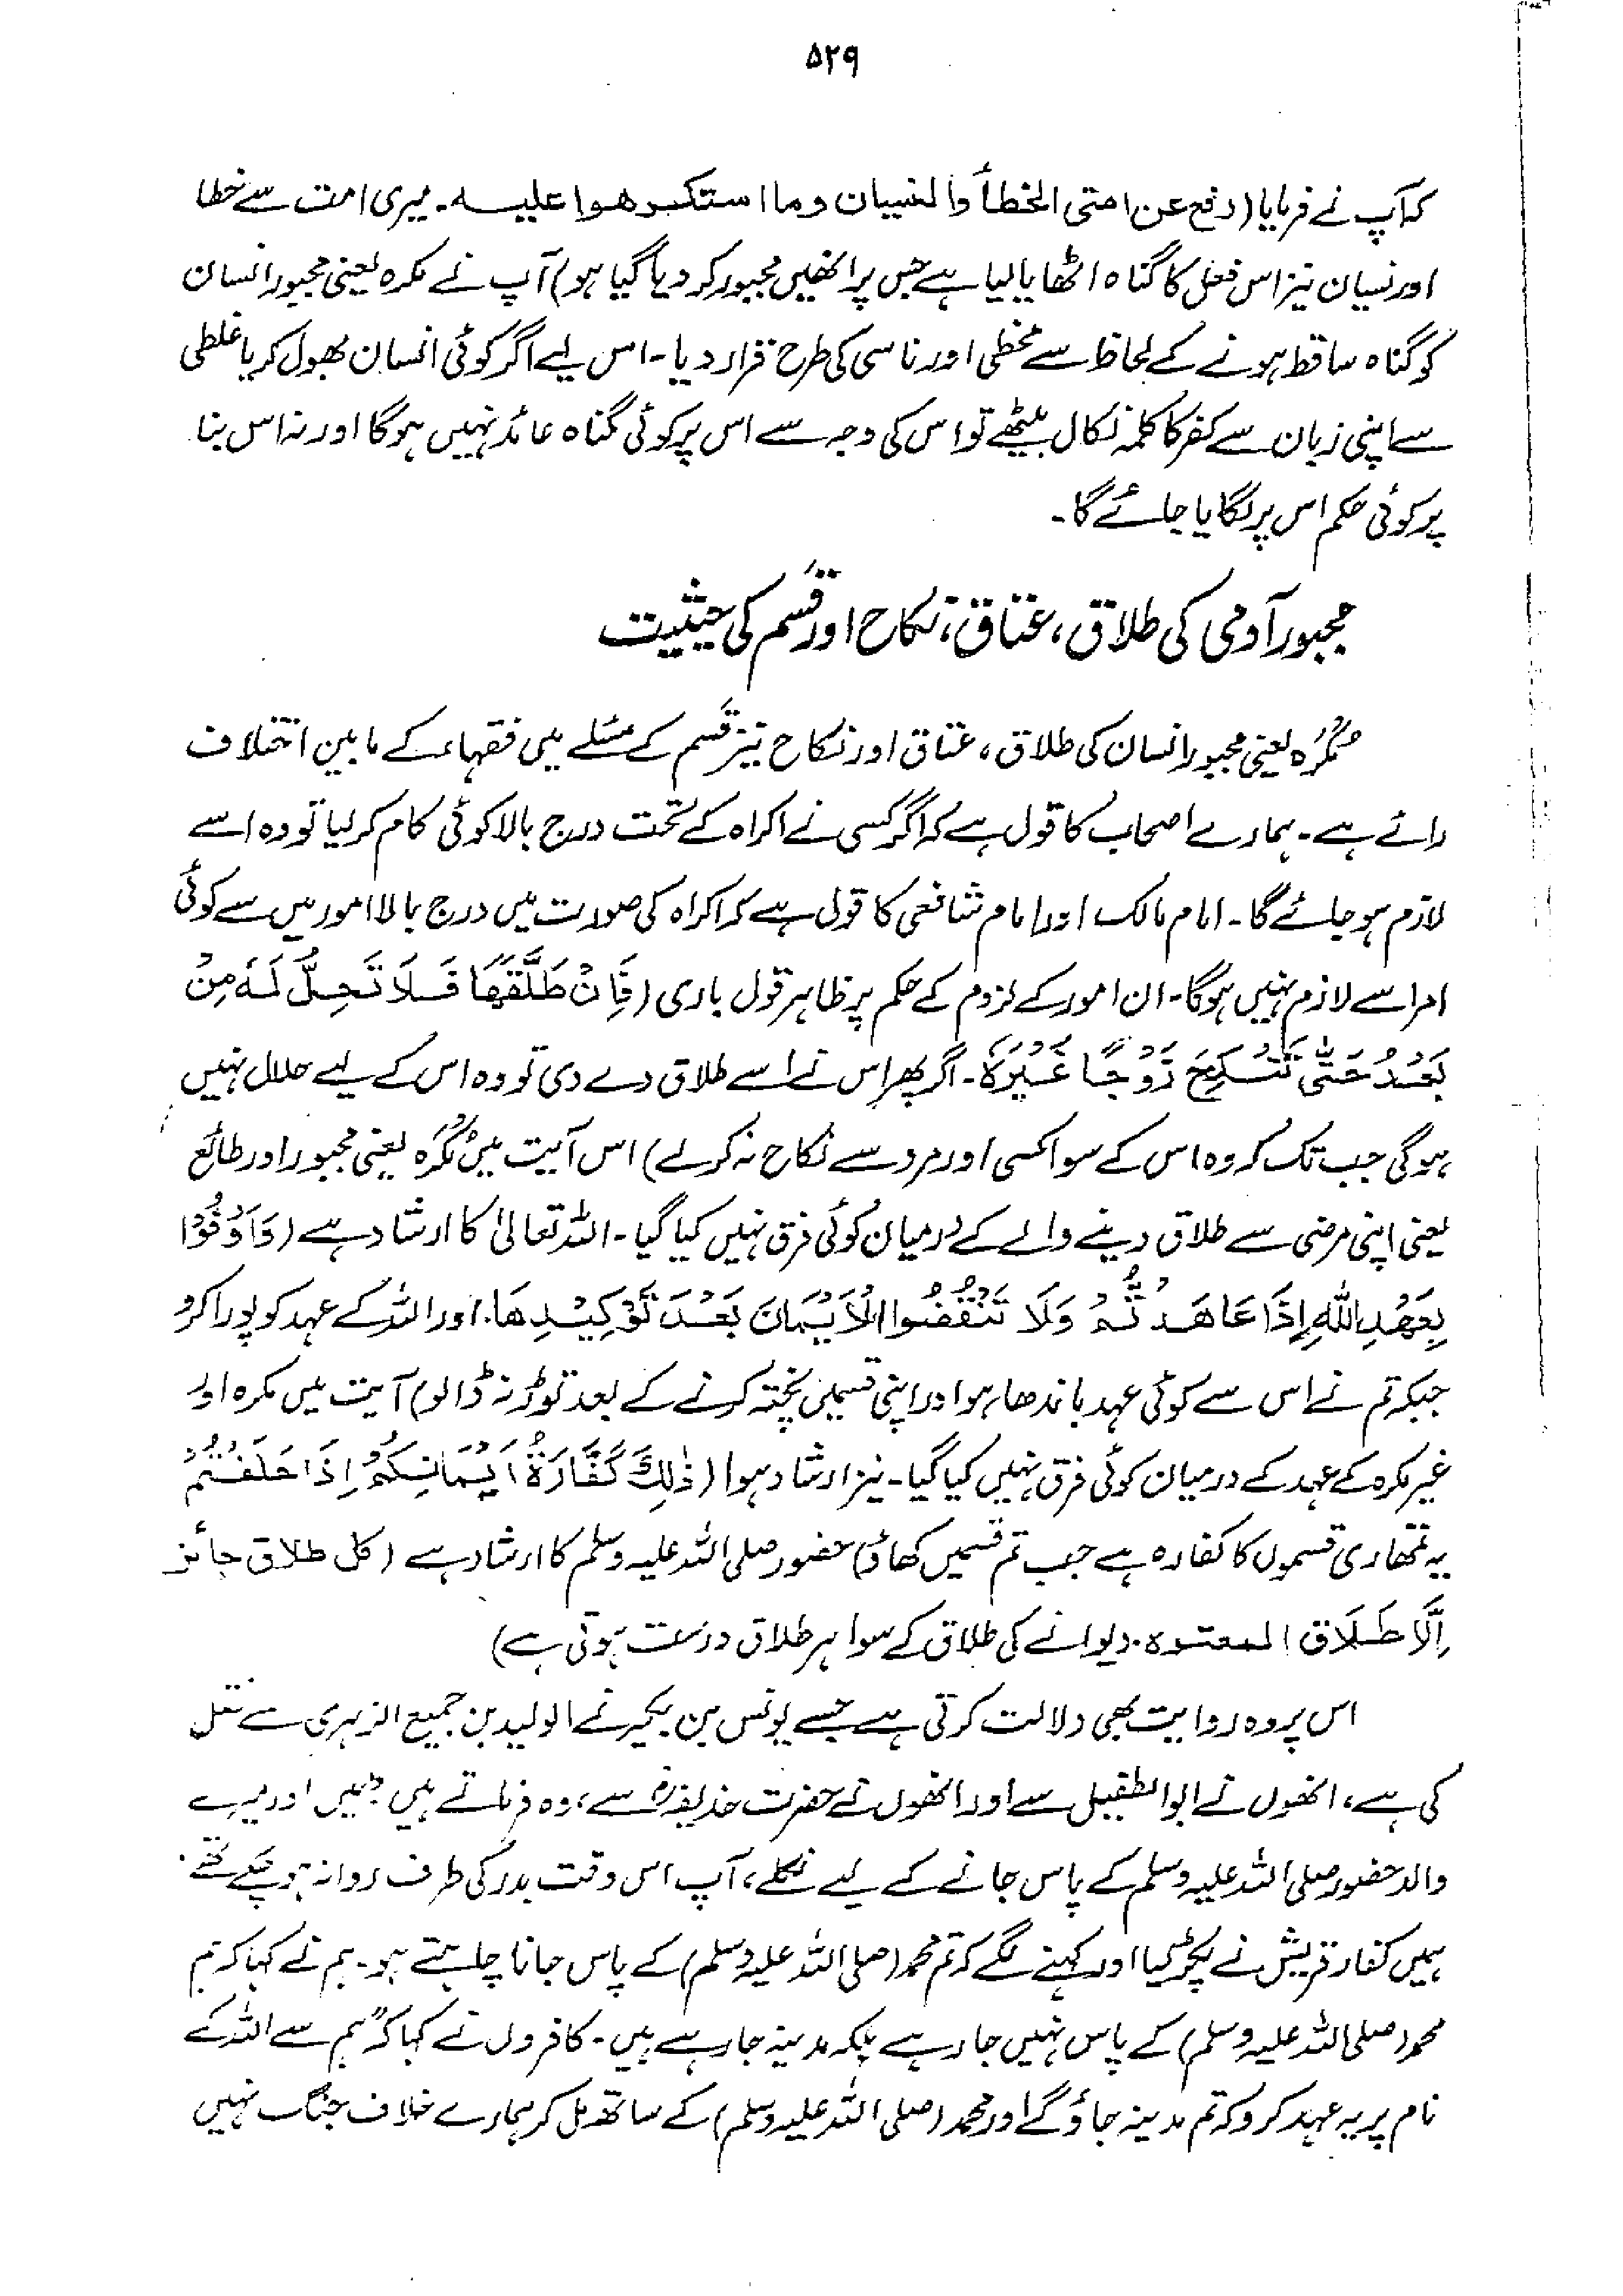 ۵۲۹
کہ آپ نے فرمایا (رفع عن امتی الخطأ والنسیان وما استکرھوا علیہ۔ میری امت سے خطا
اور نسیان نیز اس فعل کا گناہ اٹھایا لیا ہے جس پر انھیں مجبور کر دیا گیا ہو) آپ نے مکرہ یعنی مجبور انسان
کو گناہ ساقط ہونے کے لحاظ سے مخطی اور ناسی کی طرح قرار دیا۔ اس لیے اگر کوئی انسان بھول کر یا غلطی
سے اپنی زبان سے کفر کا کلمہ نکال بیٹھے تو اس کی وجہ سے اس پر کوئی گناہ عائد نہیں ہوگا اور نہ اس بنا
پر کوئی حکم اس پر لگایا جائے گا۔
مجبور آدمی کی طلاق، عتاق، نکاح اور قسم کی حیثیت
مُکْرَہ یعنی مجبور انسان کی طلاق، عتاق اور نکاح نیز قسم کے مسئلے میں فقہاء کے مابین اختلاف
رائے ہے۔ ہمارے اصحاب کا قول ہے کہ اگر کسی نے اکراہ کے تحت درج بالا کوئی کام کر لیا تو وہ اسے
لازم ہو جائے گا۔ امام مالک اور امام شافعی کا قول ہے کہ اکراہ کی صورت میں درج بالا امور میں سے کوئی
امر اسے لازم نہیں ہوگا۔ ان امور کے لزوم کے حکم پر ظاہر قول باری (فَاِنْ طَلَّقَهَا فَلَا تَحِلُّ لَهٗ مِنْ
بَعْدُ حَتّٰی تَنْكِحَ زَوْجًا غَيْرَهٗ۔ اگر پھر اس نے اسے طلاق دے دی تو وہ اس کے لیے حلال نہیں
ہوگی جب تک کہ وہ اس کے سوا کسی اور مرد سے نکاح نہ کر لے) اس آیت میں مُکْرَہ یعنی مجبور اور طائع
یعنی اپنی مرضی سے طلاق دینے والے کے درمیان کوئی فرق نہیں کیا گیا۔ اللہ تعالیٰ کا ارشاد ہے (وَاَوْفُوْا
بِعَهْدِ اللّٰهِ اِذَا عَاهَدْتُّمْ وَلَا تَنْقُضُوا الْاَيْمَانَ بَعْدَ تَوْكِيْدِهَا۔ اور اللہ کے عہد کو پورا کرو
جبکہ تم نے اس سے کوئی عہد باندھا ہو اور اپنی قسمیں پختہ کرنے کے بعد توڑ نہ ڈالو) آیت میں مکرہ اور
غیر مکرہ کے عہد کے درمیان کوئی فرق نہیں کیا گیا۔ نیز ارشاد ہوا (ذٰلِكَ كَفَّارَةُ اَيْمَانِكُمْ اِذَا حَلَفْتُمْ
یہ تمھاری قسموں کا کفارہ ہے جب تم قسمیں کھاؤ) حضور صلی اللہ علیہ وسلم کا ارشاد ہے (کل طلاق جائز
اِلَّا طَلَاق المعتوہ۔ دیوانے کی طلاق کے سوا ہر طلاق درست ہوتی ہے)
اس پر وہ روایت بھی دلالت کرتی ہے جسے یونس بن بکیر نے الولید بن جمیع الزہری سے نقل
کی ہے، انھوں نے ابوالطفیل سے اور انھوں نے حضرت حذیفہؓ سے، وہ فرماتے ہیں "میں اور میرے
والد حضور صلی اللہ علیہ وسلم کے پاس جانے کے لیے نکلے، آپ اس وقت بدر کی طرف روانہ ہو چکے تھے۔
ہمیں کفار قریش نے پکڑ لیا اور کہنے لگے کہ تم محمد (صلی اللہ علیہ وسلم) کے پاس جانا چاہتے ہو۔ ہم نے کہا کہ ہم
محمد (صلی اللہ علیہ وسلم) کے پاس نہیں جا رہے بلکہ مدینہ جا رہے ہیں۔ کافروں نے کہا کہ "ہم سے اللہ کے
نام پر یہ عہد کرو کہ تم مدینہ جاؤ گے اور محمد (صلی اللہ علیہ وسلم) کے ساتھ مل کر ہمارے خلاف جنگ نہیں